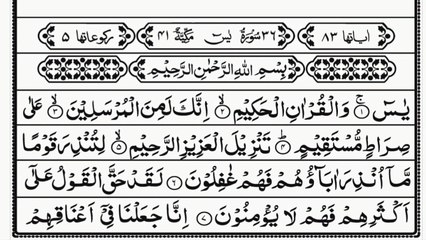 اياتها ٨٣ ٣٦ سُوْرَةُ يٰسٓ مَكِّيَّةٌ ٤١ ركوعاتها ٥
بِسْمِ اللّٰهِ الرَّحْمٰنِ الرَّحِيْمِ
يٰسٓ ۚ﴿۱﴾ وَالْقُرْاٰنِ الْحَكِيْمِ ۙ﴿۲﴾ اِنَّكَ لَمِنَ الْمُرْسَلِيْنَ ۙ﴿۳﴾ عَلٰى
صِرَاطٍ مُّسْتَقِيْمٍ ؕ﴿۴﴾ تَنْزِيْلَ الْعَزِيْزِ الرَّحِيْمِ ۙ﴿۵﴾ لِتُنْذِرَ قَوْمًا
مَّاۤ اُنْذِرَ اٰبَآؤُهُمْ فَهُمْ غٰفِلُوْنَ ﴿۶﴾ لَقَدْ حَقَّ الْقَوْلُ عَلٰۤى
اَكْثَرِهِمْ فَهُمْ لَا يُؤْمِنُوْنَ ﴿۷﴾ اِنَّا جَعَلْنَا فِىْۤ اَعْنَاقِهِمْ